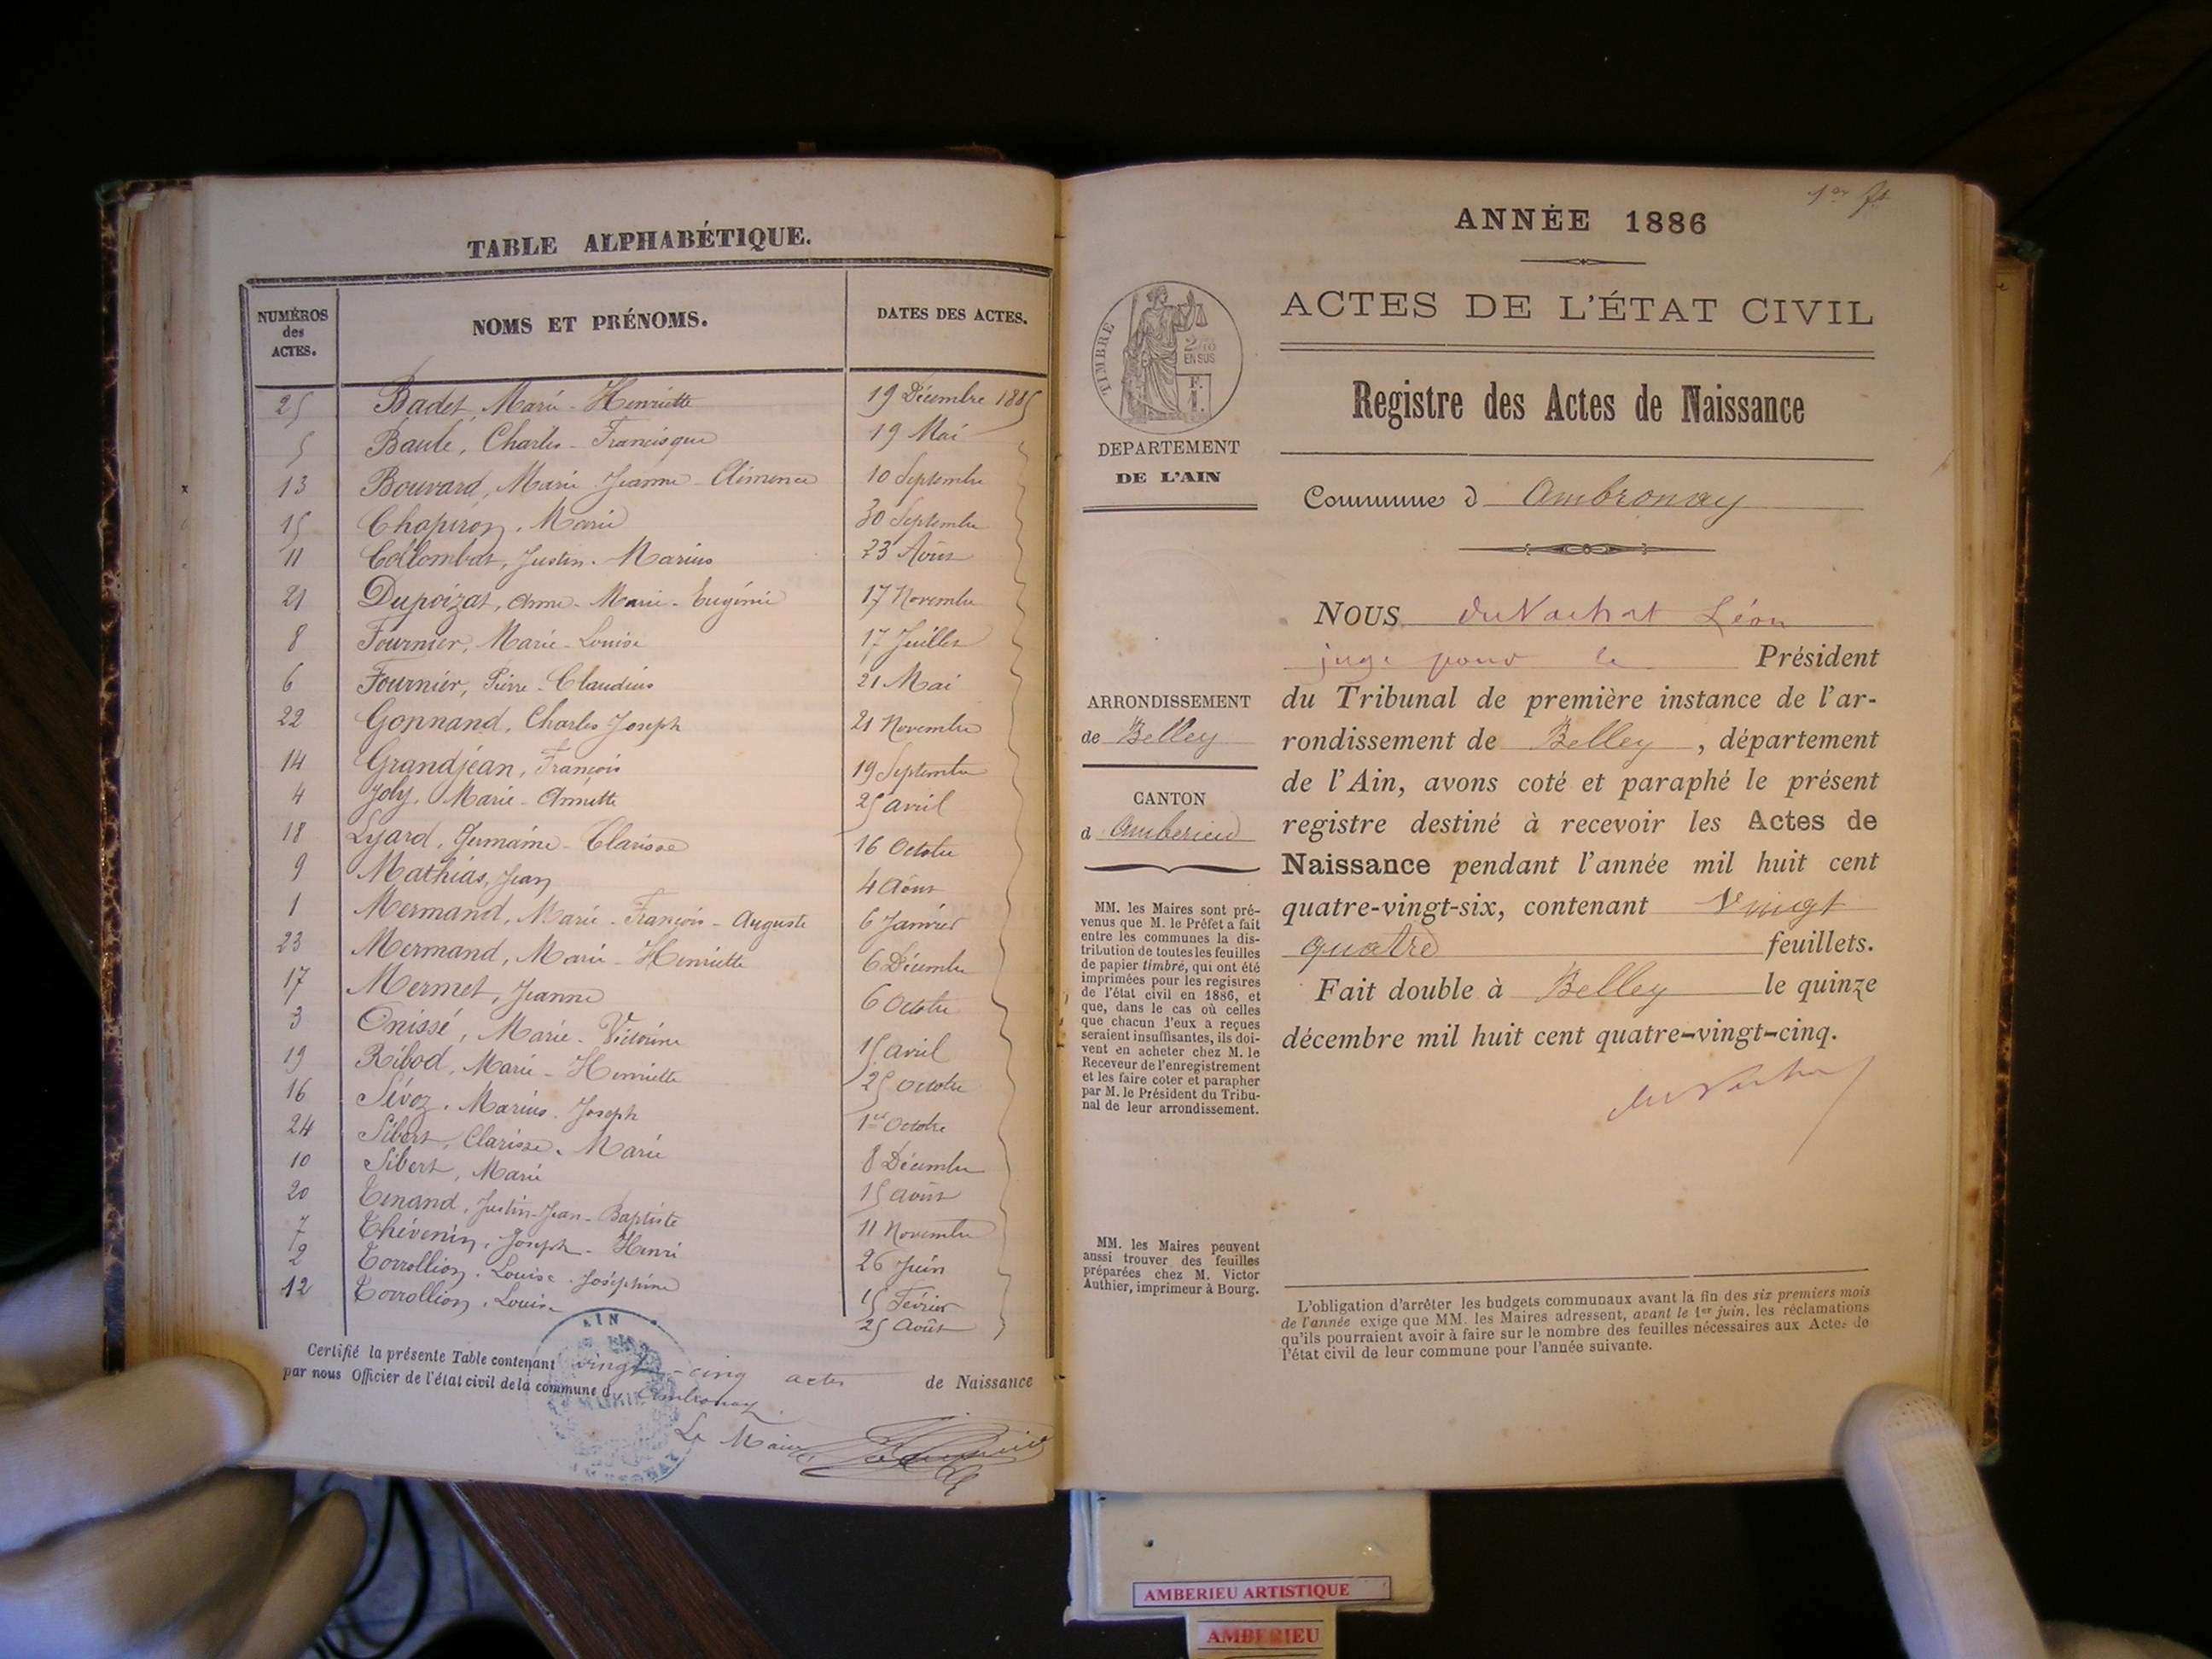 TABLE ALPHABÉTIQUE.
NUMÉROS
des
ACTES.
NOMS ET PRÉNOMS.
DATES DES ACTES.
25 Badet, Marie-Henriette 19 Décembre 1885
5 Baulé, Charles-Francisque 19 Mai
13 Bouvard, Marie Jeanne-Clémence 10 Septembre
15 Chapiron, Marie 30 Septembre
11 Collombat, Justin-Marius 23 Août
21 Dupoizat, Anne-Marie-Eugénie 17 Novembre
8 Fournier, Marie-Louise 17 Juillet
6 Fournier, Pierre-Claudius 21 Mai
22 Gonnand, Charles Joseph 21 Novembre
14 Grandjean, François 19 Septembre
4 Joly, Marie-Annette 25 avril
18 Lyard, Germaine-Clarisse 16 Octobre
9 Mathias, Jean 4 Août
1 Mermand, Marie-François-Auguste 6 Janvier
23 Mermand, Marie-Henriette 6 Décembre
17 Mermet, Jeanne 6 Octobre
3 Onissé, Marie-Victorine 15 avril
19 Ribod, Marie-Henriette 25 Octobre
16 Sévoz, Marius-Joseph 1er Octobre
24 Sibert, Clarisse-Marie 8 Décembre
10 Sibert, Marie 15 août
20 Tenand, Justin-Jean-Baptiste 11 Novembre
7 Thévenin, Joseph-Henri 26 Juin
2 Torrollion, Louise-Joséphine 15 Février
12 Torrollion, Louise 25 Août
Certifié la présente Table contenant vingt-cinq actes de Naissance
par nous Officier de l'état civil de la commune d Ambronay.
AIN
MAIRIE
Le Maire
1er ft
ANNÉE 1886
ACTES DE L'ÉTAT CIVIL
TIMBRE
2/10
EN SUS
DEPARTEMENT
DE L'AIN
Registre des Actes de Naissance
Commune d Ambronay
NOUS du Vachat Léon
juge pour le Président
du Tribunal de première instance de l'ar-
rondissement de Belley, département
de l'Ain, avons coté et paraphé le présent
registre destiné à recevoir les Actes de
Naissance pendant l'année mil huit cent
quatre-vingt-six, contenant Vingt
quatre feuillets.
Fait double à Belley le quinze
décembre mil huit cent quatre-vingt-cinq.
du Vachat
ARRONDISSEMENT
de Belley
CANTON
d Ambérieu
MM. les Maires sont pré-
venus que M. le Préfet a fait
entre les communes la dis-
tribution de toutes les feuilles
de papier timbré, qui ont été
imprimées pour les registres
de l'état civil en 1886, et
que, dans le cas où celles
que chacun d'eux a reçues
seraient insuffisantes, ils doi-
vent en acheter chez M. le
Receveur de l'enregistrement
et les faire coter et parapher
par M. le Président du Tribu-
nal de leur arrondissement.
MM. les Maires peuvent
aussi trouver des feuilles
préparées chez M. Victor
Authier, imprimeur à Bourg.
L'obligation d'arrêter les budgets communaux avant la fin des six premiers mois
de l'année exige que MM. les Maires adressent, avant le 1er juin, les réclamations
qu'ils pourraient avoir à faire sur le nombre des feuilles nécessaires aux Actes de
l'état civil de leur commune pour l'année suivante.
AMBERIEU ARTISTIQUE
AMBERIEU